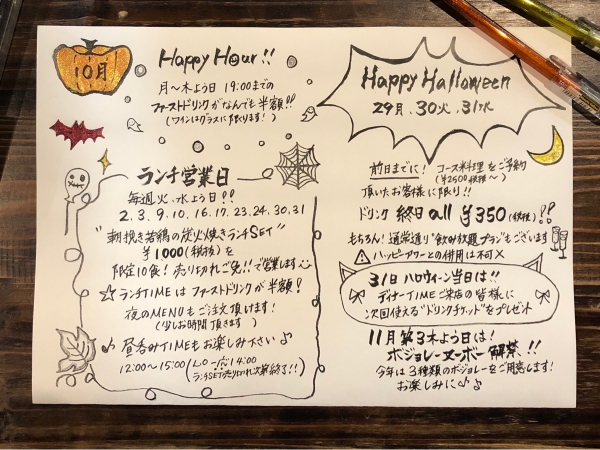 10月
Happy Hour!!
月～木よう日 19:00までの
ファーストドリンクがなんでも半額!!
(ワインはグラスに限ります!)
ランチ営業日
毎週火・水よう日!!
2.3.9.10.16.17.23.24.30.31
"朝挽き若鶏の炭火焼きランチSET"
¥1000(税抜)を
限定10食!売り切れご免!!で営業します
☆ランチTIMEはファーストドリンクが半額!
夜のMENUもご注文頂けます!
(少しお時間頂きます)
♪昼呑みTIMEもお楽しみ下さい♪
12:00〜15:00(L.O 14:00
ランチSET売り切れ次第終了!!)
Happy Halloween
29月.30火.31水
前日までに!コース料理をご予約
(¥2500税抜〜)
頂いたお客様に限り!!
ドリンク 終日all ¥350(税抜)!!
もちろん!通常通り"飲み放題プランもございます
⚠ハッピーアワーとの併用は不可×
31日ハロウィーン当日は!!
ディナーTIMEご来店の皆様に
次回使える"ドリンクチケット"をプレゼント
11月第3木よう日は!
ボジョレーヌーボー解禁!!
今年は3種類のボジョレーをご用意します!
お楽しみに♪♪